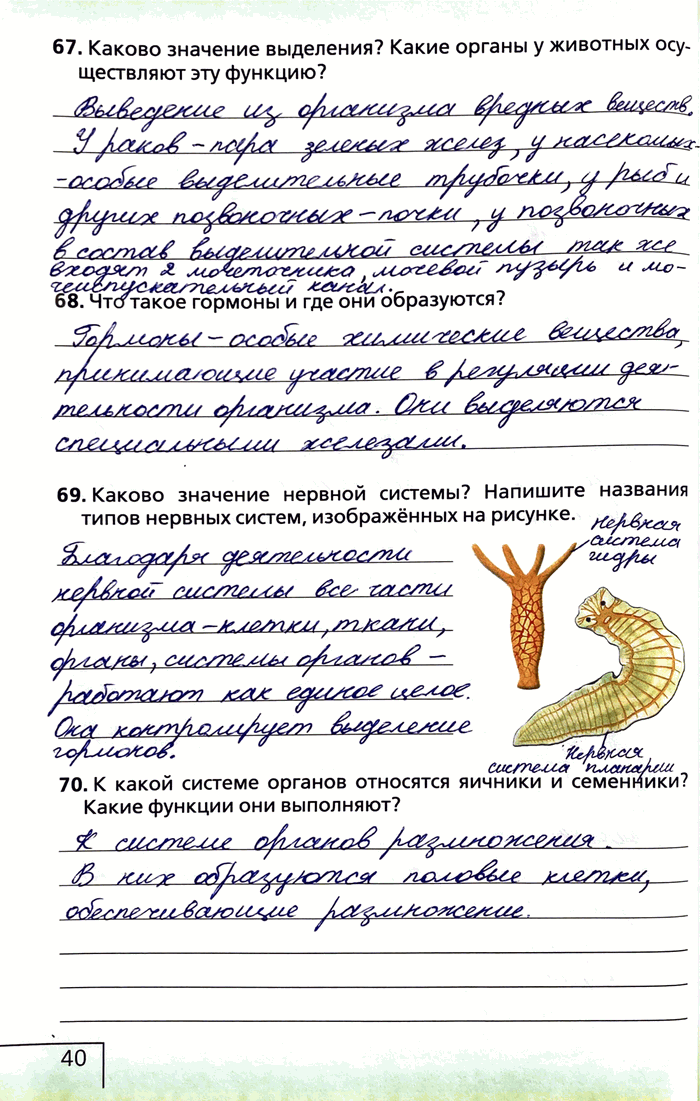 67. Каково значение выделения? Какие органы у животных осу-
ществляют эту функцию?
Выведение из организма вредных веществ.
У раков – пара зеленых желез, у насекомых-
-особые выделительные трубочки, у рыб и
других позвоночных – почки, у позвоночных
в состав выделительной системы так же
входят 2 мочеточника, мочевой пузырь и мо-
чеиспускательный канал.
68. Что такое гормоны и где они образуются?
Гормоны – особые химические вещества,
принимающие участие в регуляции дея-
тельности организма. Они выделяются
специальными железами.
69. Каково значение нервной системы? Напишите названия
типов нервных систем, изображённых на рисунке.
Нервная
система
гидры
Благодаря деятельности
нервной системы все части
организма – клетки, ткани,
органы, системы органов –
работают как единое целое.
Она контролирует выделение
гормонов.
Нервная
система планарии
70. К какой системе органов относятся яичники и семенники?
Какие функции они выполняют?
К системе органов размножения.
В них образуются половые клетки,
обеспечивающие размножение.
40